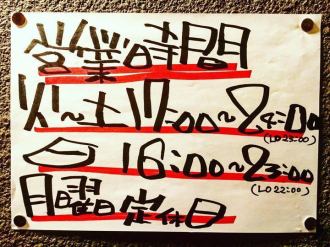 営業時間
火~土17:00~24:00
(LO 23:00)
日 16:00~23:00
(LO 22:00)
月曜日定休日